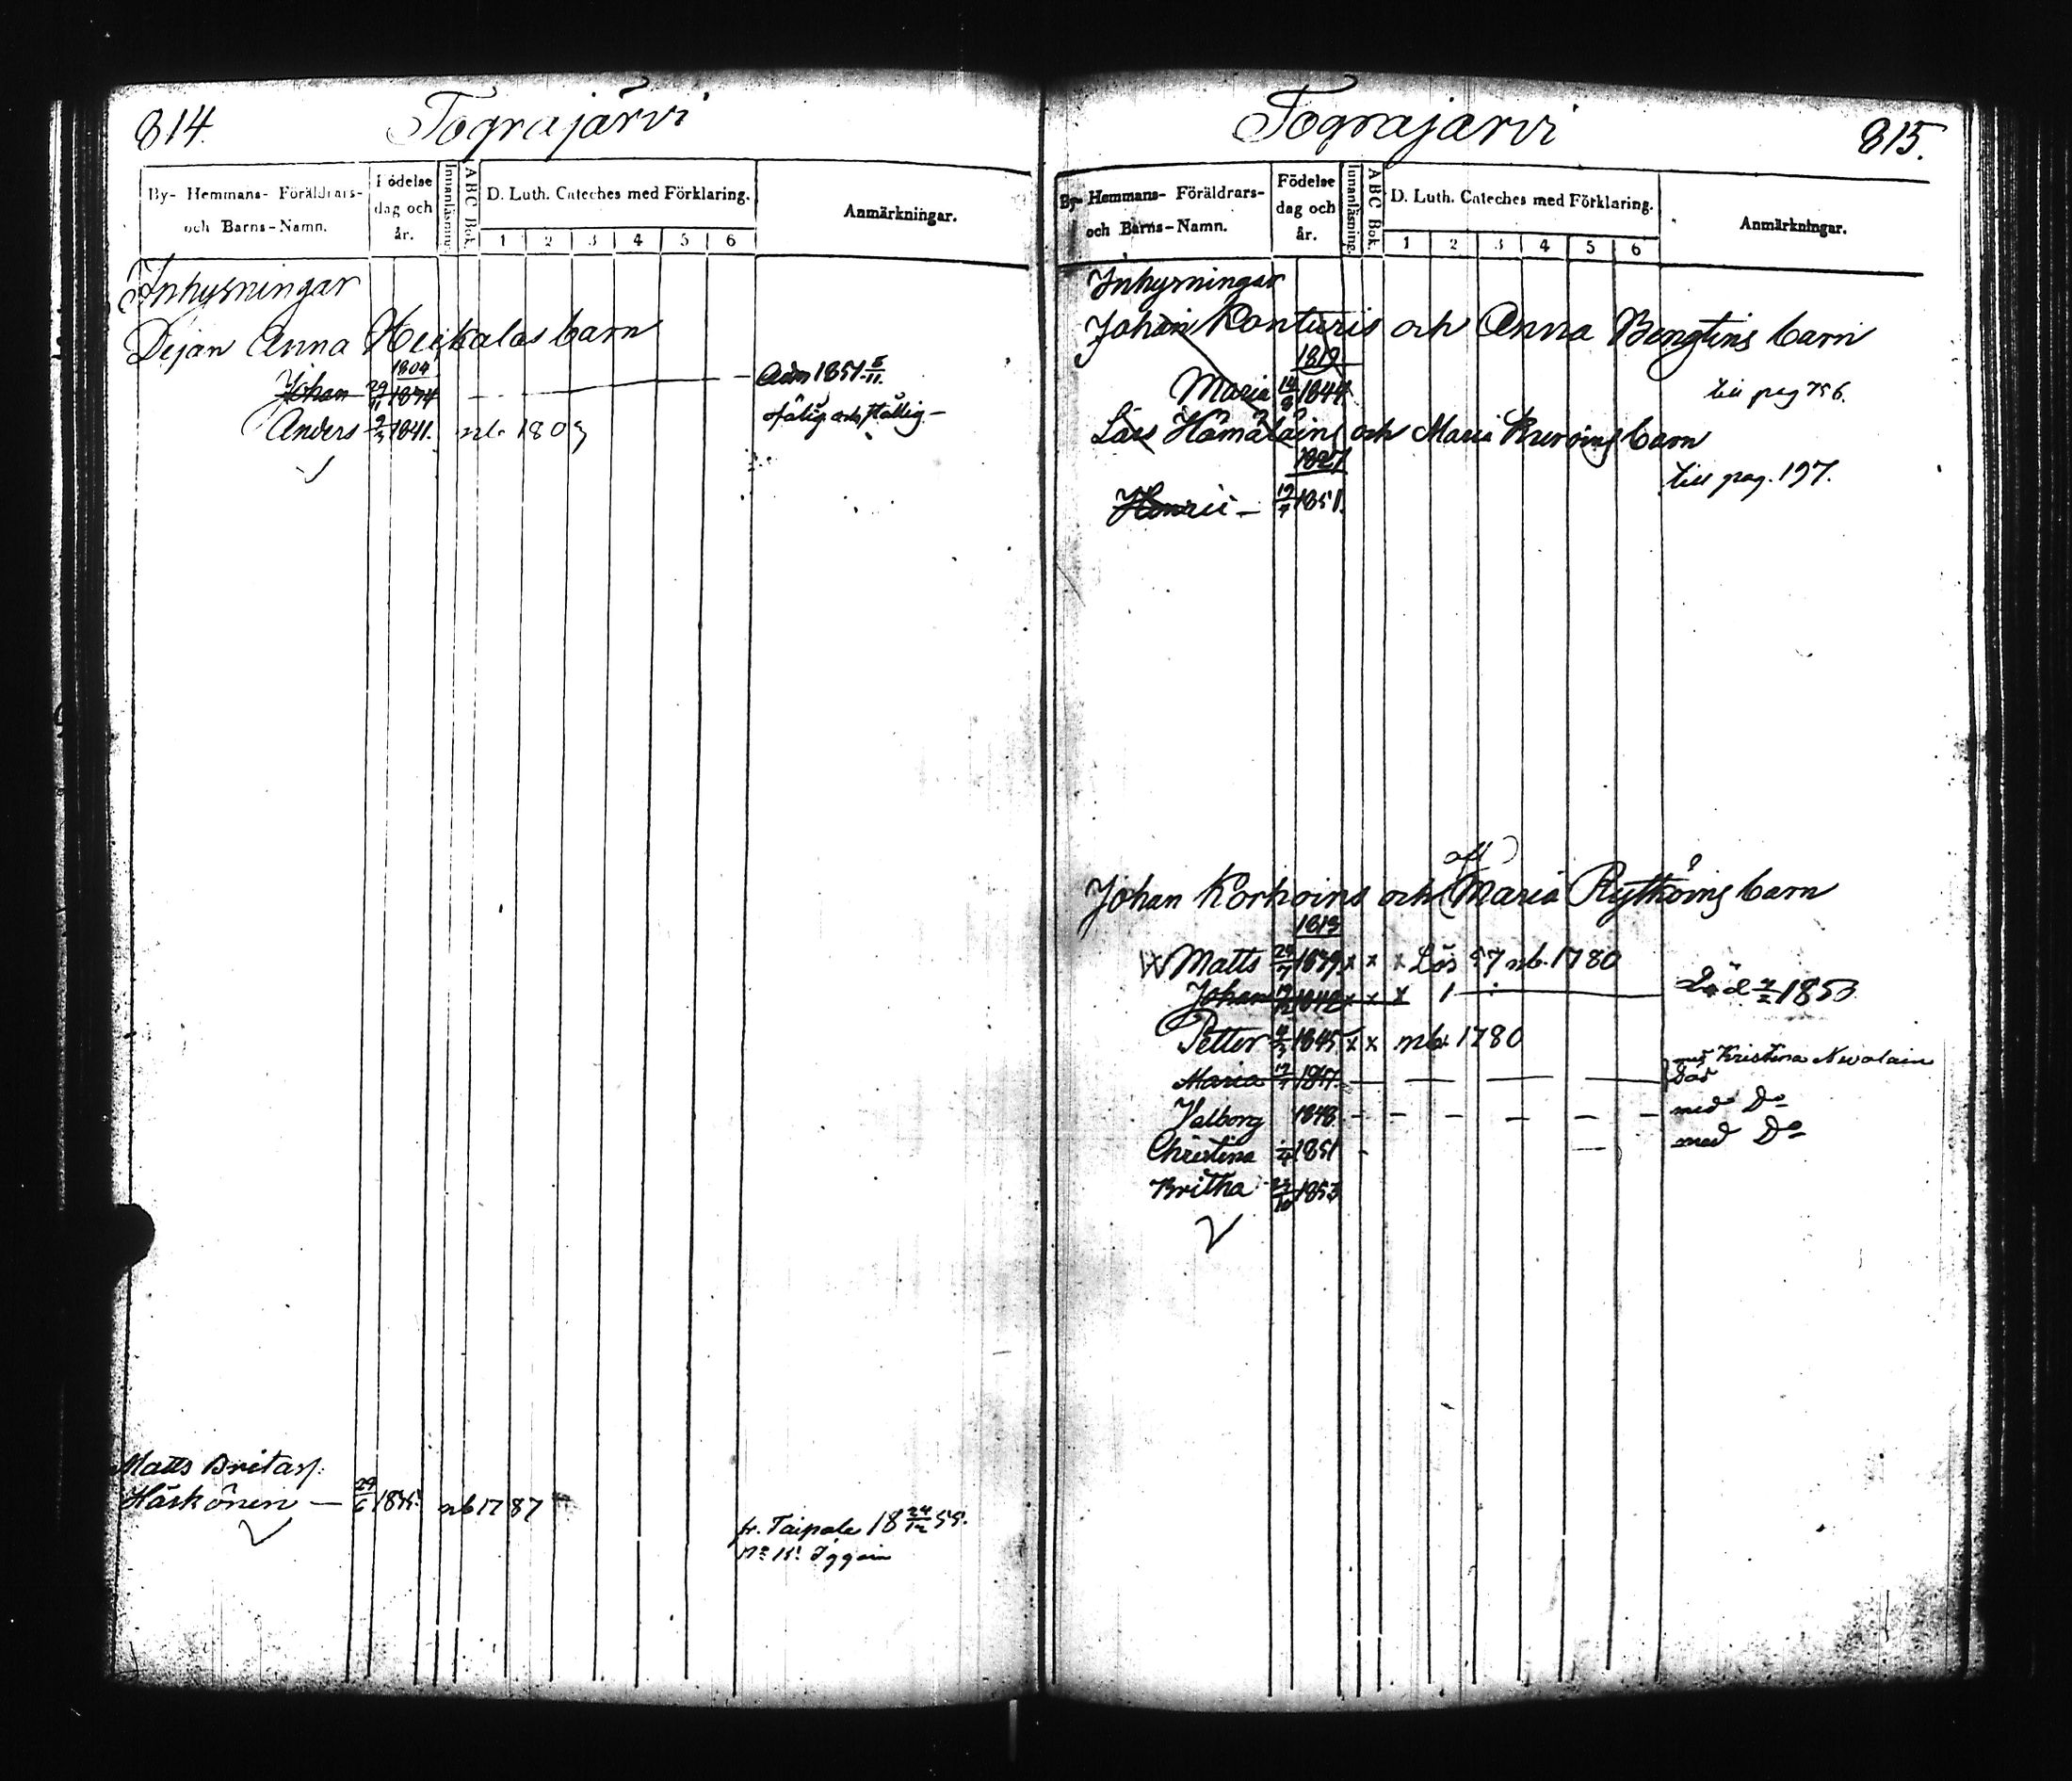 814.
Tograjärvi
By- Hemmans- Föräldrars-
och Barns-Namn.
Födelse
dag och
år.
Innanläsning.
ABC Bok.
D. Luth. Cateches med Förklaring.
1 2 3 4 5 6
Anmärkningar.
Inhysningar
Dejan Anna Heikalas barn
1804
Johan 29/11 1834 Adm 1851 8/11
Anders 9/3 1841. nb. 1809
ofälig och ställig -
Matts Britas
Härkönen - 29/6 1845 nb 1787
fr. Taipale 18 24/12 55.
Tograjärvi
815.
By- Hemmans- Föräldrars-
och Barns-Namn.
Födelse
dag och
år.
Innanläsning.
ABC Bok.
D. Luth. Cateches med Förklaring.
1 2 3 4 5 6
Anmärkningar.
Inhysningar
Johan Konturis och Anna Bengtins barn
1819
Maria 14/8 1844 till pag 756.
Lars Hämäläins och Maria barn
1827
Henric - 19/7 1851. till pag. 197.
Johan Korhoins och Maria Rytköins barn
1813
Matts 1839 x x x Läs 57 nb. 1780
Johan 1842 x x x 1 Död 1853
Petter 4/3 1845 x x nb. 1780
Maria 1847 - - - - med Kristina Nevalain
Valborg 1848 - - - - - - med Do
Christina 1851 - med Do
Britha 23/10 1853